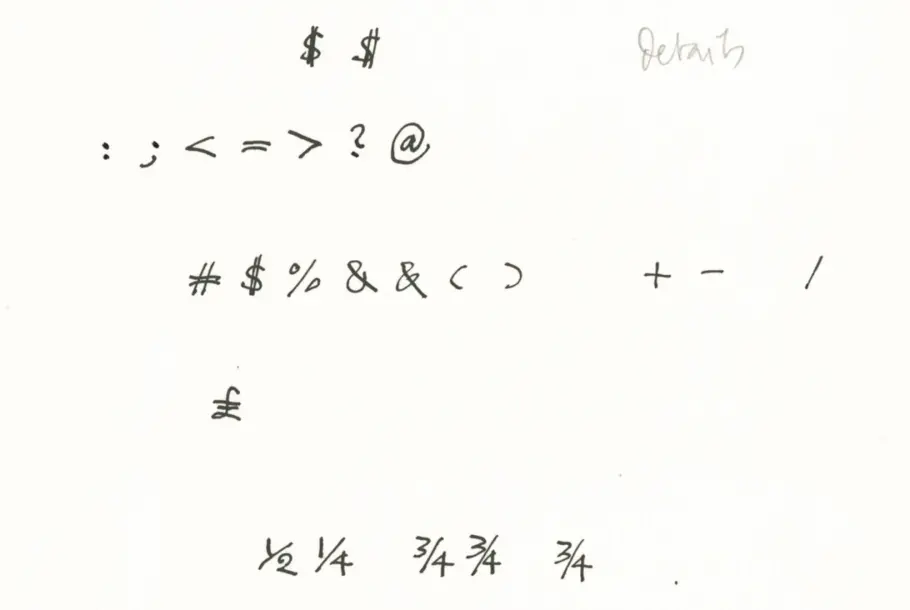 $ $ Details
: ; < = > ? @
# $ % & & ( ) + - /
£
½ ¼ ¾ ¾ ¾ .